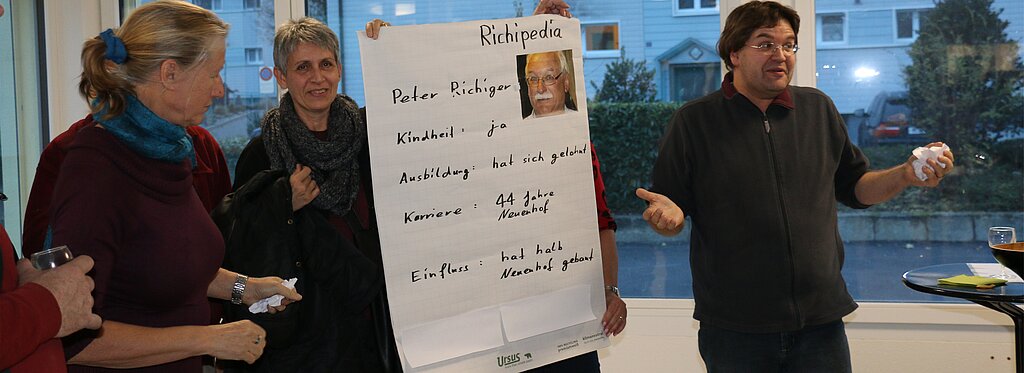 Richipedia
Peter Richiger
Kindheit: ja
Ausbildung: hat sich gelohnt
Karriere: 44 Jahre
Neuenhof
Einfluss: hat halb
Neuenhof gebaut
Ursus